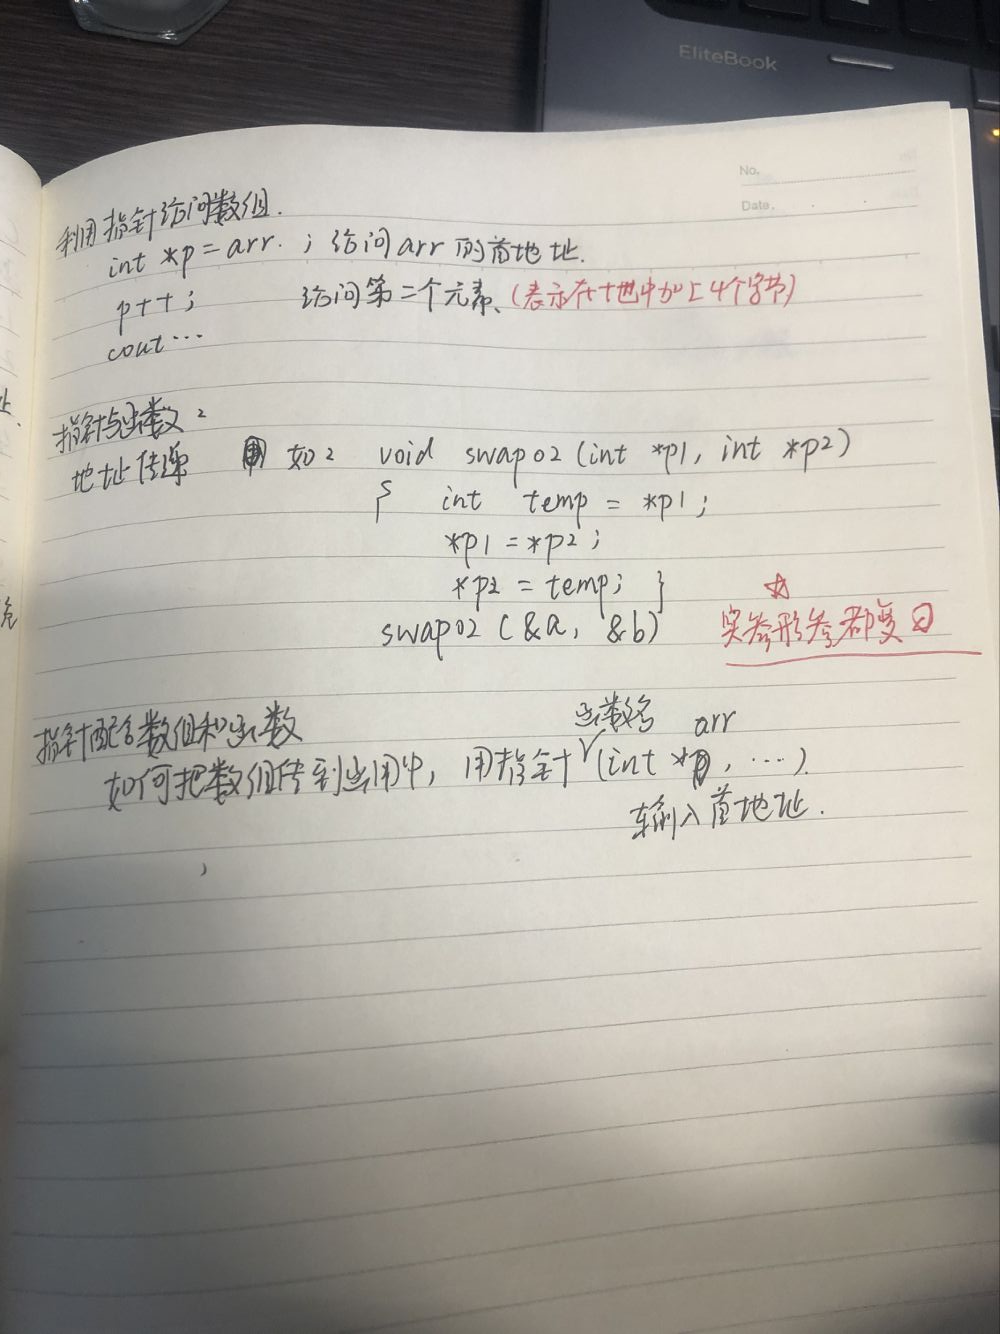 EliteBook
No.
Date.
利用指针访问数组.
int *p = arr. ; 访问arr的首地址.
p++; 访问第二个元素、(表示在十地中加上4个字节)
cout...
指针与函数:
地址传递 如: void swap02 (int *p1, int *p2)
{ int temp = *p1;
*p1 = *p2;
*p2 = temp; }
swap02 (&a, &b) ☆ 实参形参都变
指针配合数组和函数
函数名 arr
如何把数组传到函用中, 用指针 (int *p, ...).
输入首地址.